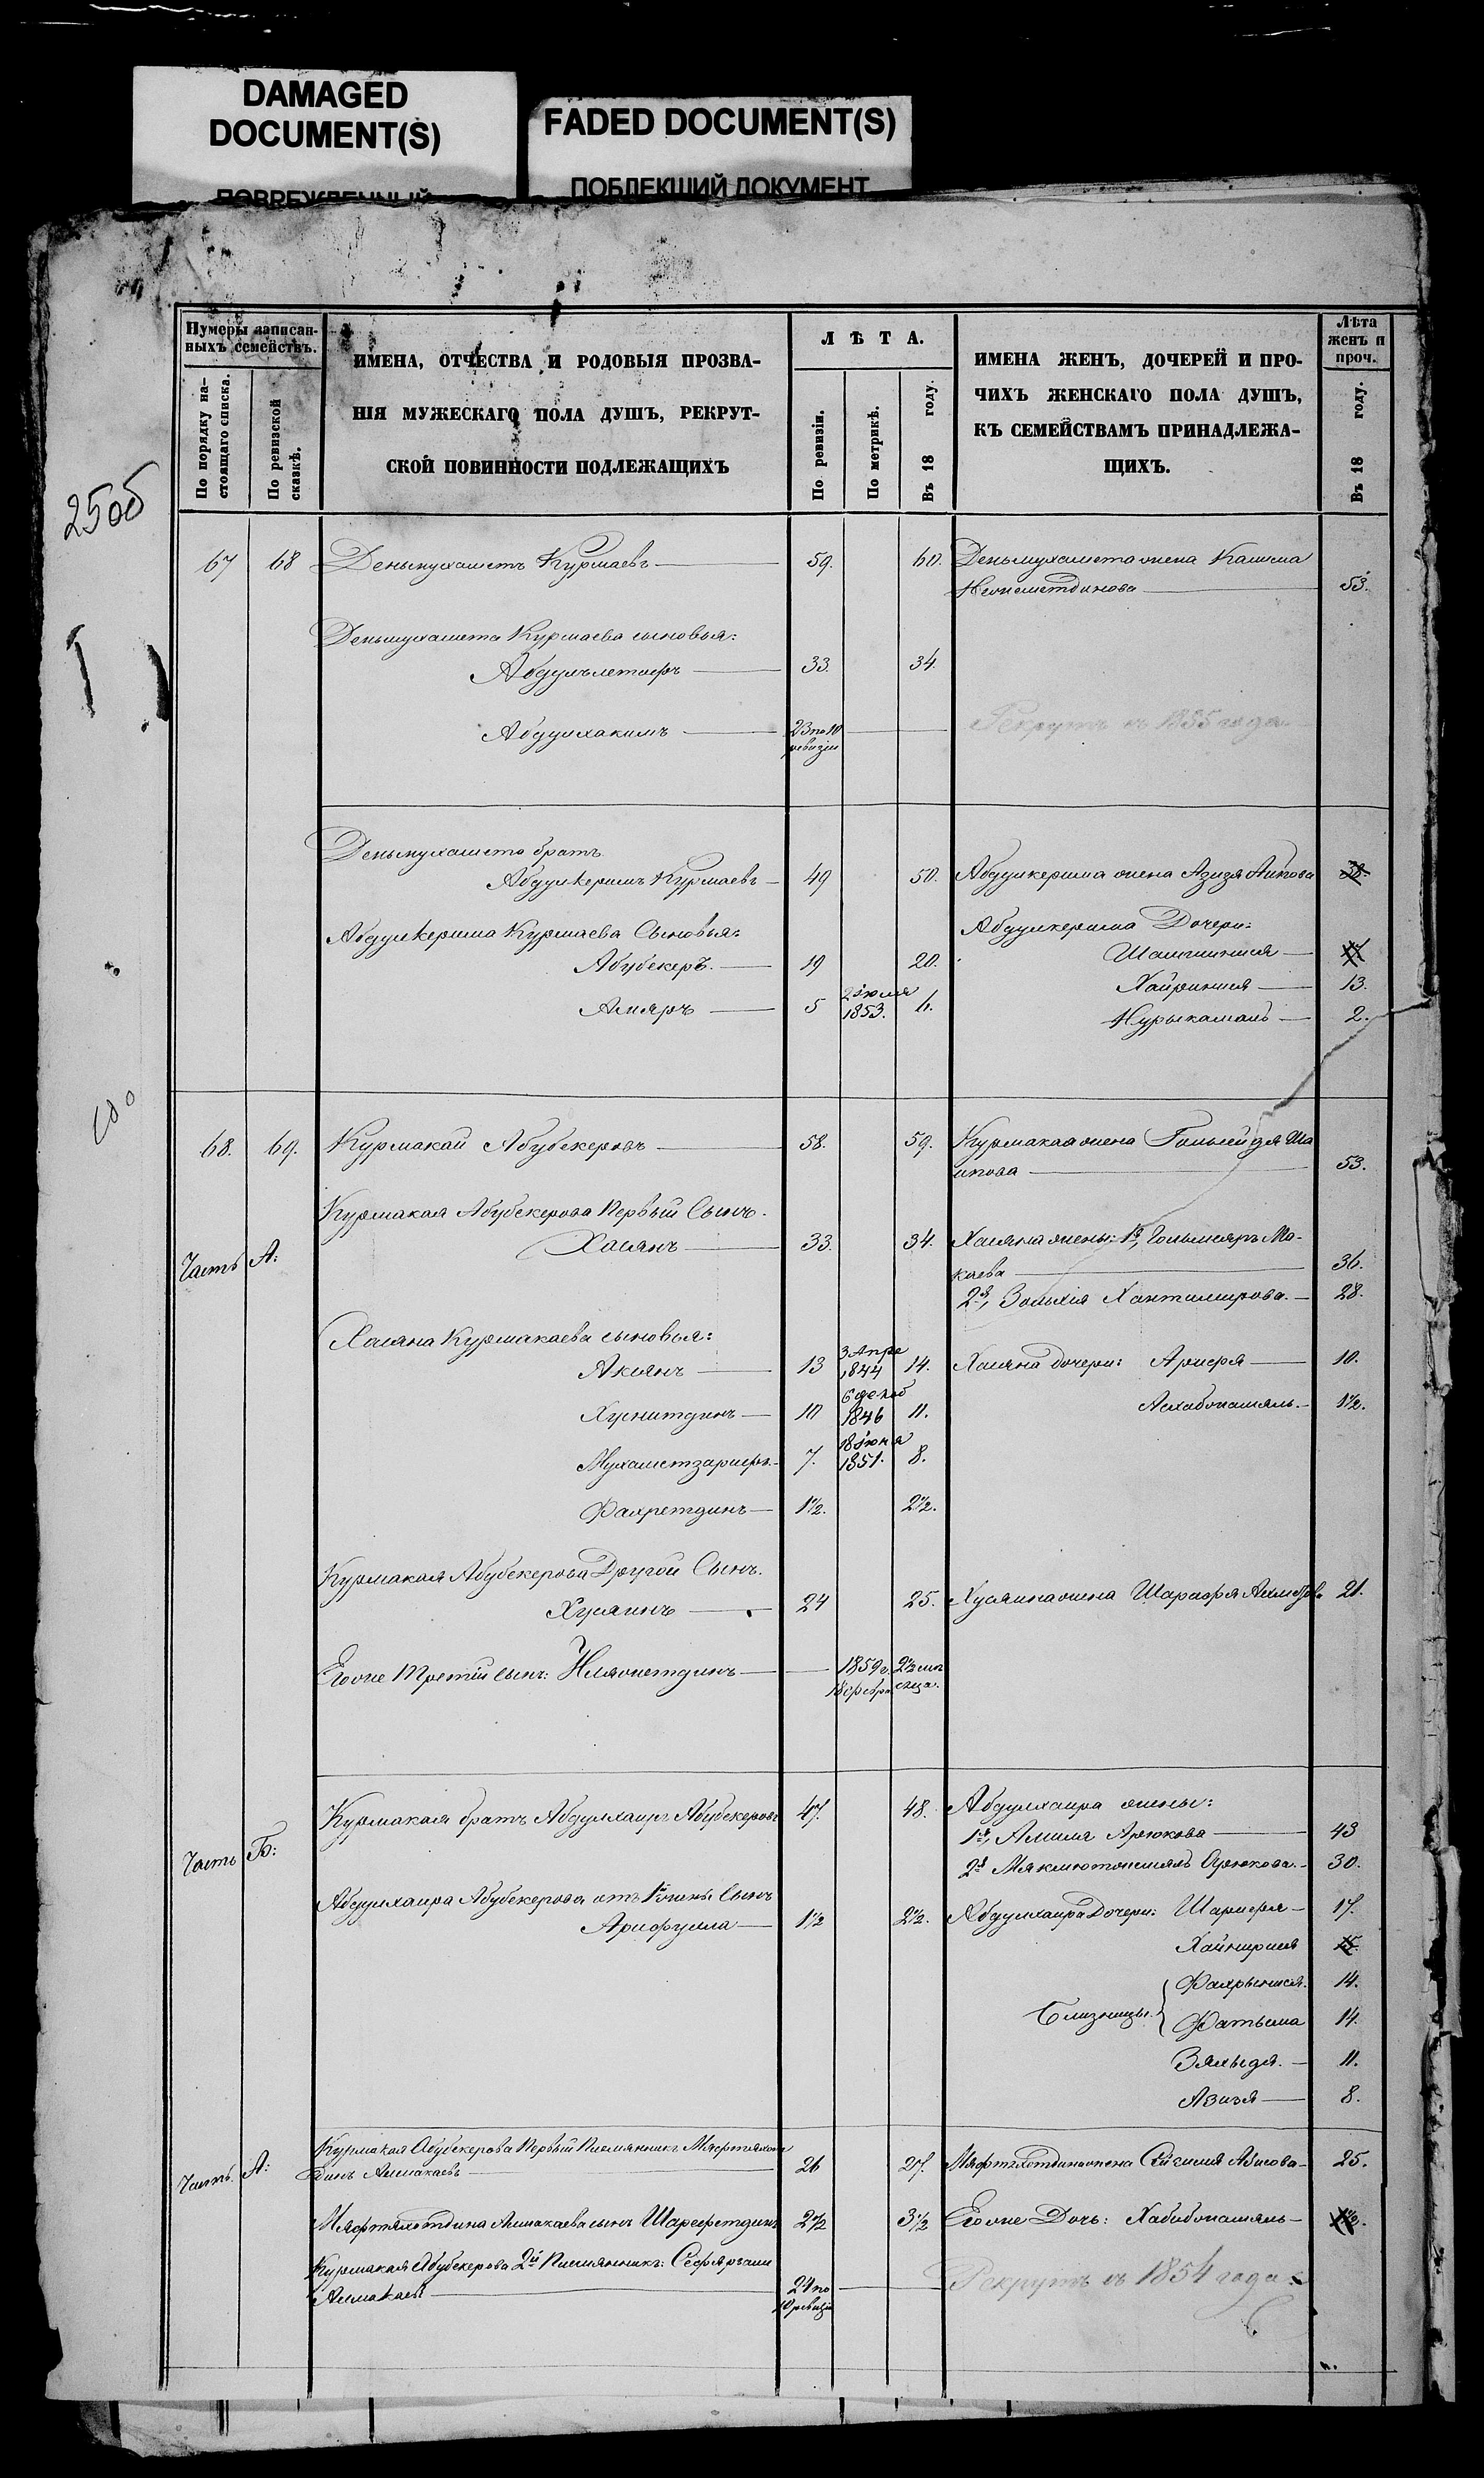 DAMAGED
DOCUMENT(S)
FADED DOCUMENT(S)
ПОВРЕЖДЕННЫЙ
ПОБЛЕКШИЙ ДОКУМЕНТ
Нумеры записан-
ныхъ семействъ.
По порядку на-
стоящаго списка.
По ревизской
сказкѣ.
ИМЕНА, ОТЧЕСТВА И РОДОВЫЯ ПРОЗВА-
НІЯ МУЖЕСКАГО ПОЛА ДУШЪ, РЕКРУТ-
СКОЙ ПОВИННОСТИ ПОДЛЕЖАЩИХЪ
ЛѢТА.
По ревизіи.
По метрикѣ.
Въ 18 году.
ИМЕНА ЖЕНЪ, ДОЧЕРЕЙ И ПРО-
ЧИХЪ ЖЕНСКАГО ПОЛА ДУШЪ,
КЪ СЕМЕЙСТВАМЪ ПРИНАДЛЕЖА-
ЩИХЪ.
Лѣта
женъ и
проч.
Въ 18 году.
25об
67 68 Деньмухаметъ Курмаевъ 59. 60. Деньмухамета жена Калима
53.
Деньмухамета Курмаева сыновья:
Абдулълетифъ 33. 34.
Абдулхакимъ 23 по 10 Рекрутъ съ 1855 года
ревизіи
Деньмухамета братъ
Абдулкеримъ Курмаевъ 49 50. Абдулкерима жена Азизя Аитова
Абдулкерима Курмаева Сыновья: Абдулкерима Дочери:
Абубекеръ. 19 20.
Амяръ 5 2 Іюля 6. Хайриниса 13.
1853. Нурыкамалъ 2.
68. 69. Курмакай Абубекеровъ 58. 59. Курмакая жена Гольсейдя Ша
ипова 53.
Курмакая Абубекерова Первый Сынъ.
Часть А: Хасянъ 33. 34. Хасяна жены: 1я, Гольмсяръ Ма-
каева 36.
2я, Зольхія Хантимирова. 28.
Хасяна Курмакаева сыновья:
Аксянъ 13 3 Апре 14. Хасяна дочери: Арифя 10.
1844
Хуснитдинъ 10 6 декаб 11. Асхабжамялъ. 1½.
1846
Мухаметзарифъ 7. 18 Іюня 8.
1851.
Фахретдинъ 1½. 2½.
Курмакая Абубекерова Другой Сынъ.
Хусяинъ 24 25. Хусяина жена Шарафя 21.
Его же третій сынъ: 1859 г. 2½ мѣ
18 февра. сяца.
Курмакая братъ Абдулхаиръ Абубекеровъ 47. 48. Абдулхаира жены:
1я, Алиля Арюкова 43
Часть Б: 2я Арюкова. 30.
Абдулхаира Абубекерова отъ 1й жены Сынъ
Арифулла 1½ 2½. Абдулхаира Дочери: Шарифя 17.
Фахрыниса. 14.
Близницы. Фатыма 14.
Зяльидя. 11.
Азизя 8.
Часть А: Курмакая Абубекерова Первый Племянникъ Мифтяхет
динъ Алмакаевъ 26 27. Мифтяхетдина жена Абисова 25.
Мифтяхетдина Алмакаева сынъ Шарафетдинъ 2½ 3½ Его же Дочь: Хабибжамялъ
Курмакая Абубекерова 2й Племянникъ: Сефяргали
Алмакаевъ 24 по Рекрутъ съ 1854 года
10 ревизіи